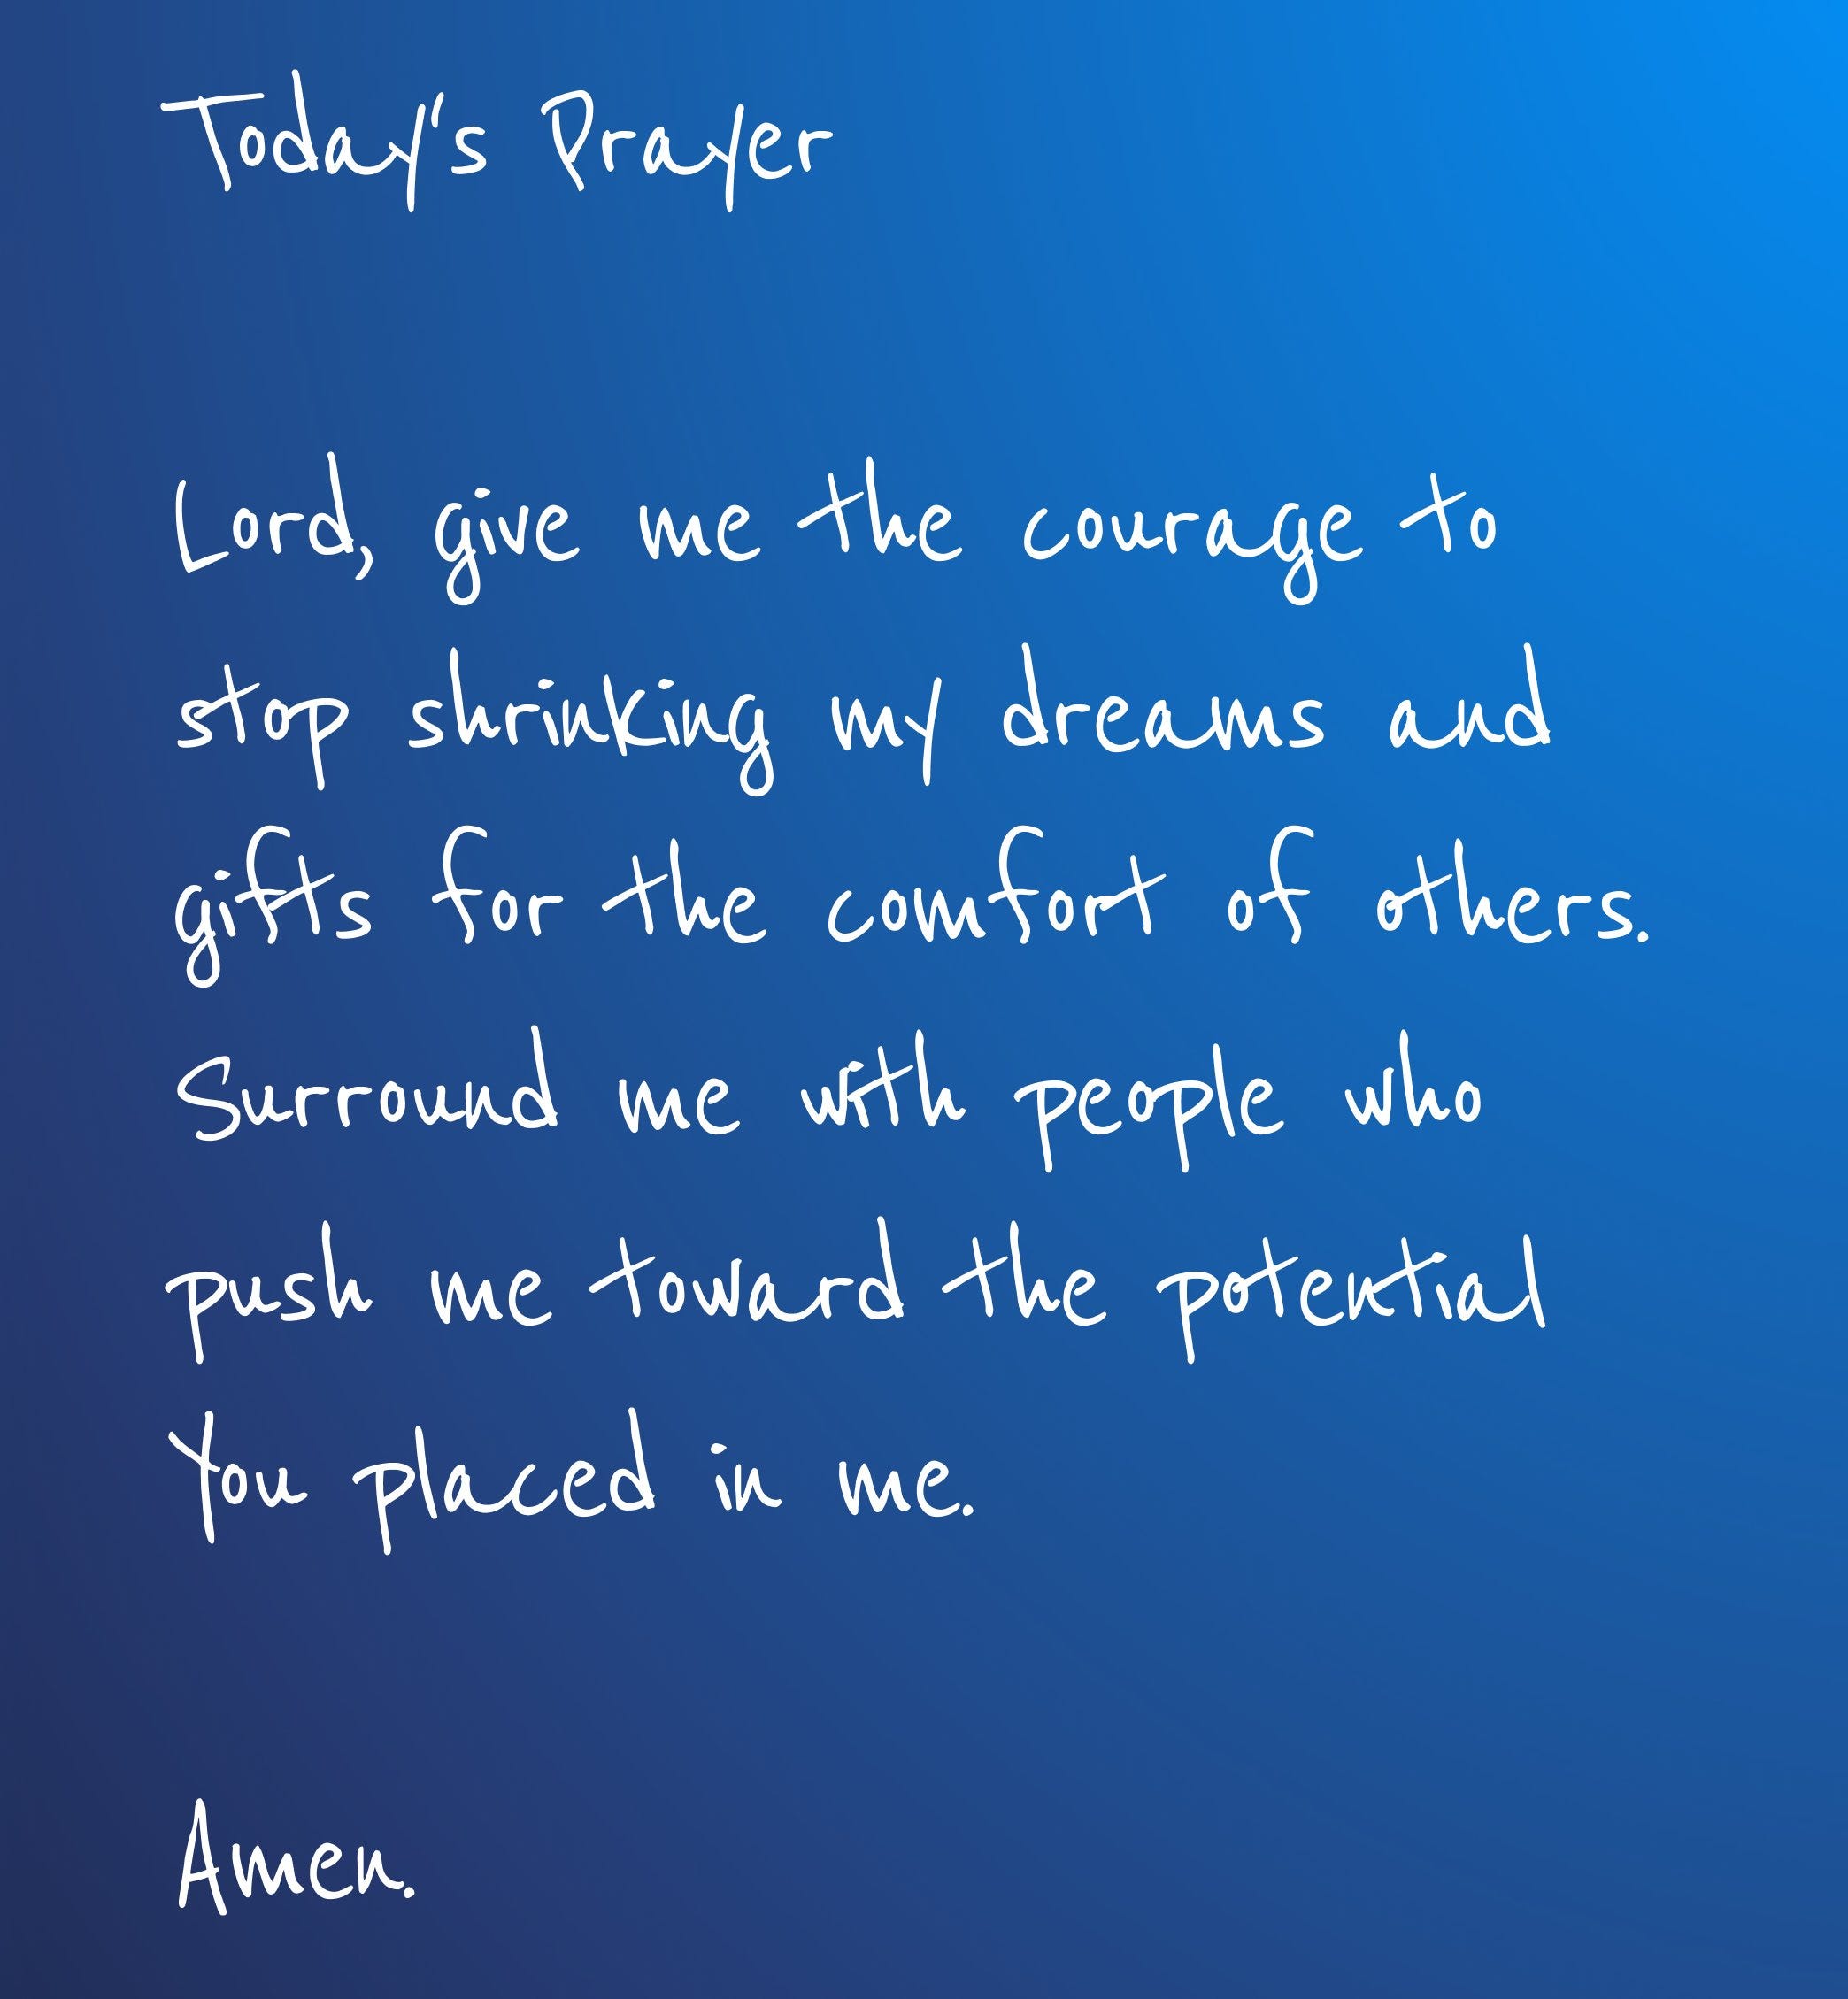 Today's Prayer
Lord, give me the courage to
stop shrinking my dreams and
gifts for the comfort of others.
Surround me with people who
push me toward the potential
You placed in me.
Amen.